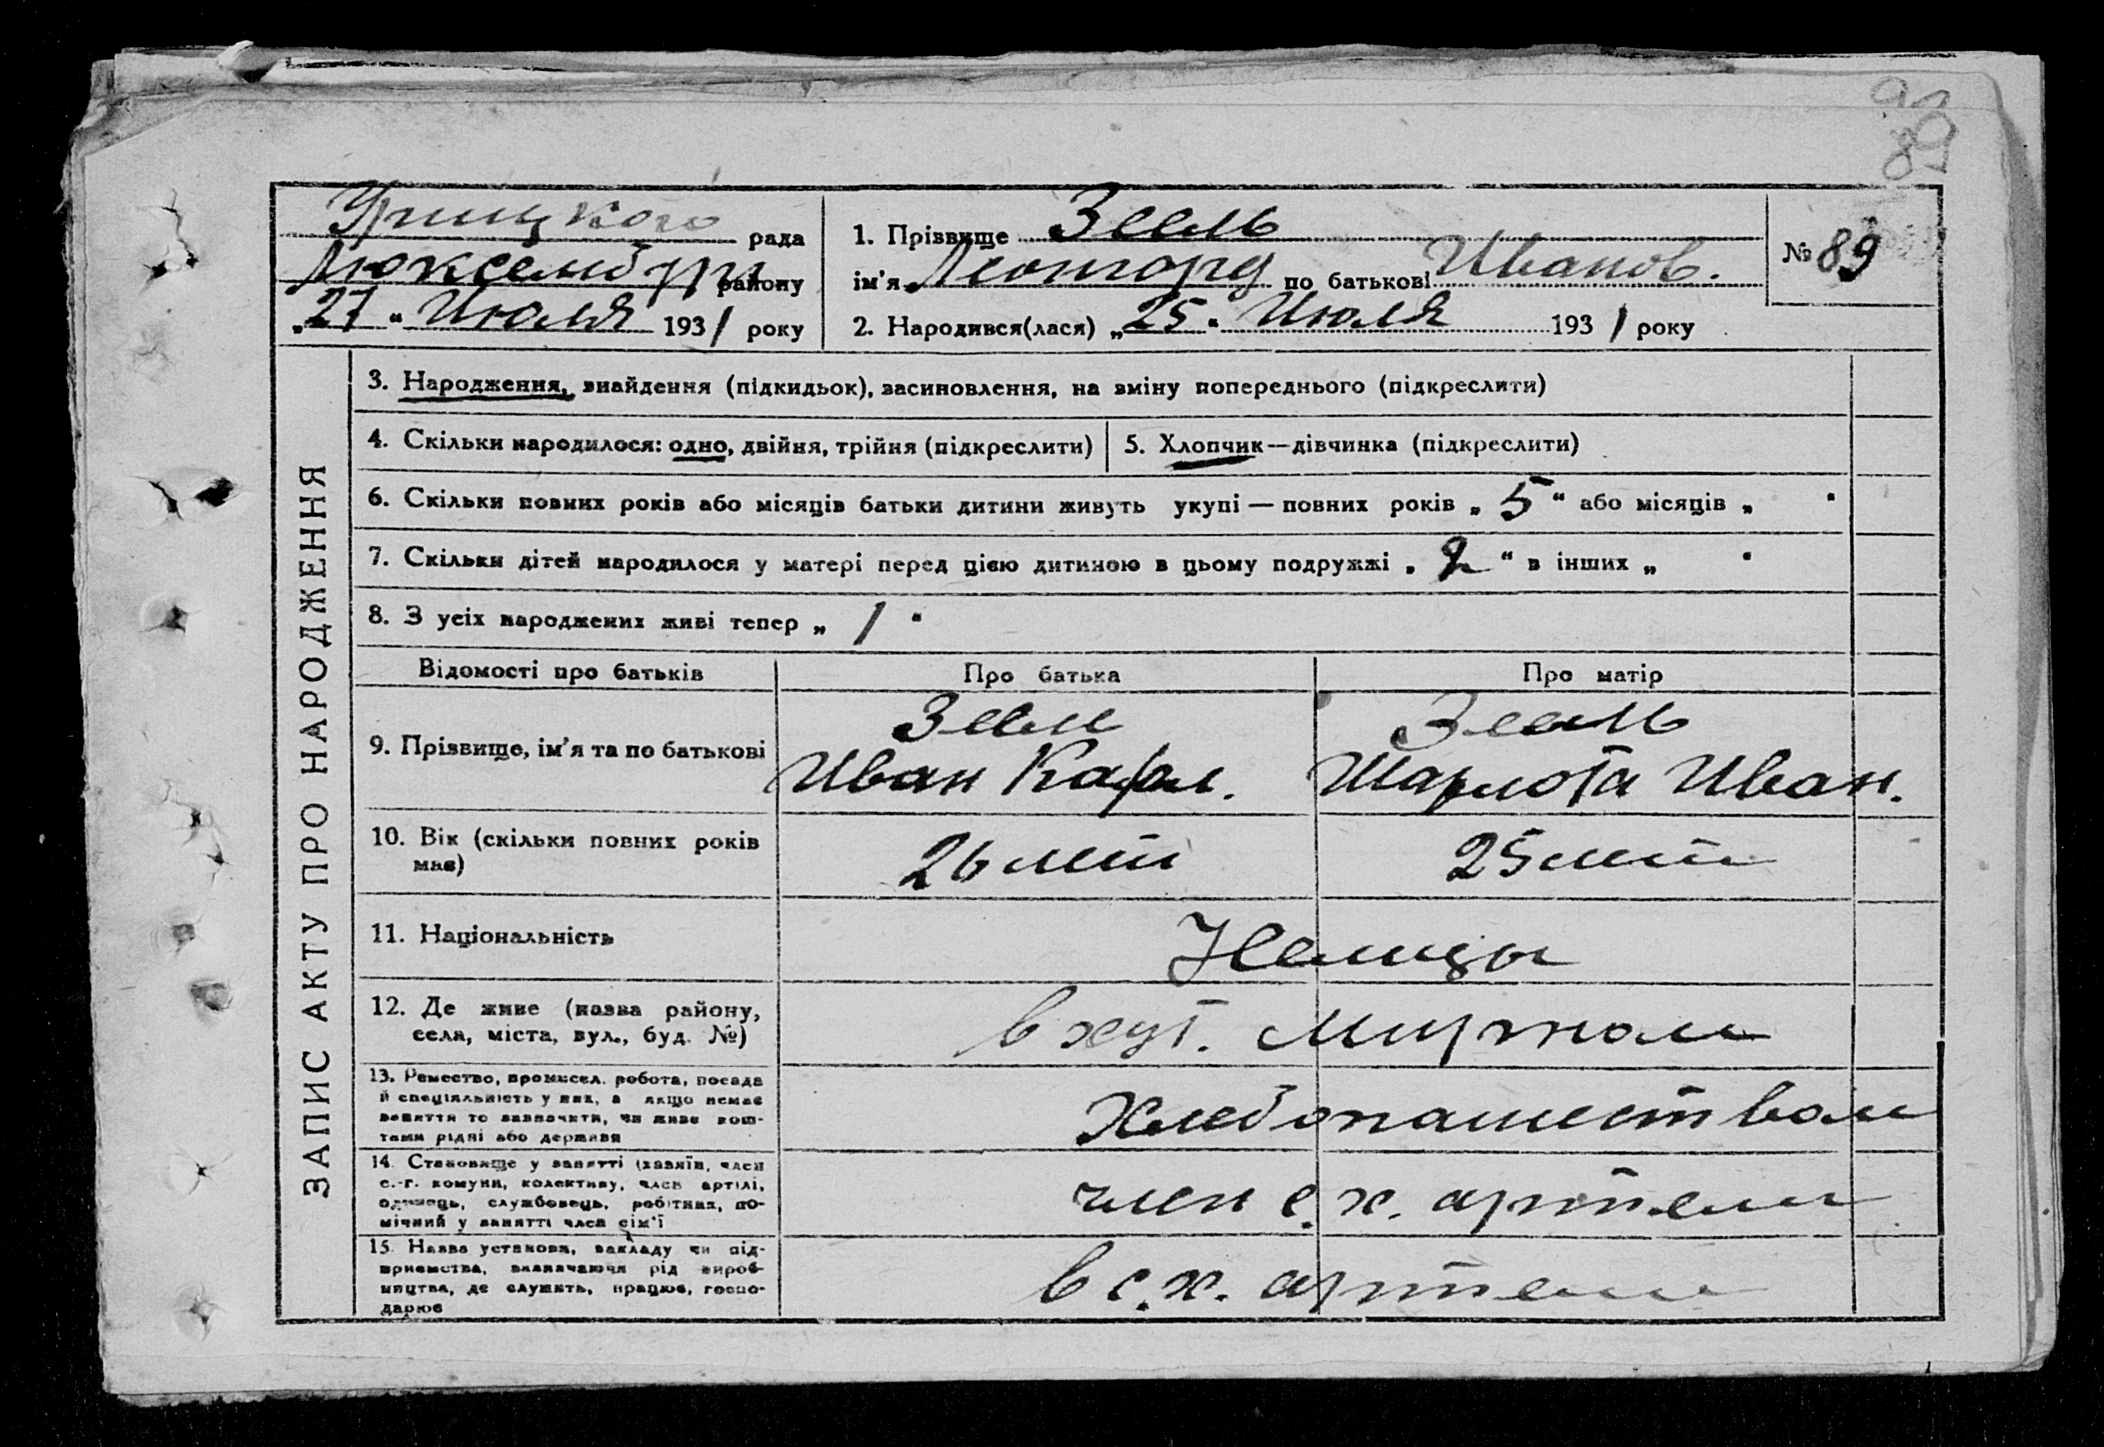 89
Урицкого рада
Люксембург району
„27“ Июля 1931 року
1. Прізвище Зеель
ім'я Леонгард по батькові Иванов.
№ 89
2. Народився(лася) „25“ Июля 1931 року
ЗАПИС АКТУ ПРО НАРОДЖЕННЯ
3. Народження, знайдення (підкидьок), засиновлення, на зміну попереднього (підкреслити)
4. Скільки народилося: одно, двійня, трійня (підкреслити)
5. Хлопчик—дівчинка (підкреслити)
6. Скільки повних років або місяців батьки дитини живуть укупі — повних років „5“ або місяців „ “
7. Скільки дітей народилося у матері перед цією дитиною в цьому подружжі „2“ в інших „ “
8. З усіх народжених живі тепер „1“
Відомості про батьків Про батька Про матір
9. Прізвище, ім'я та по батькові
Зеель
Иван Карл.
Зеель
Шарлота Иван.
10. Вік (скільки повних років
має)
26 лет
25 лет
11. Національність
Немцы
12. Де живе (назва району,
села, міста, вул., буд. №)
в хут.
13. Ремество, промисел, робота, посада
й спеціяльність у них, а якщо немає
заняття то зазначити, чи живе кош-
тами рідні або держави
Хлебопашеством
14. Становище у занятті (хазяїн, член
с.-г. комуни, колективу, член артілі,
одинець, службовець, робітник, по-
мічний у занятті член сім'ї
член с.х. артели
15. Назва установи, закладу чи під-
приємства, зазначаючи рід вироб-
ництва, де служить, працює, госпо-
дарює
в с.х. артели